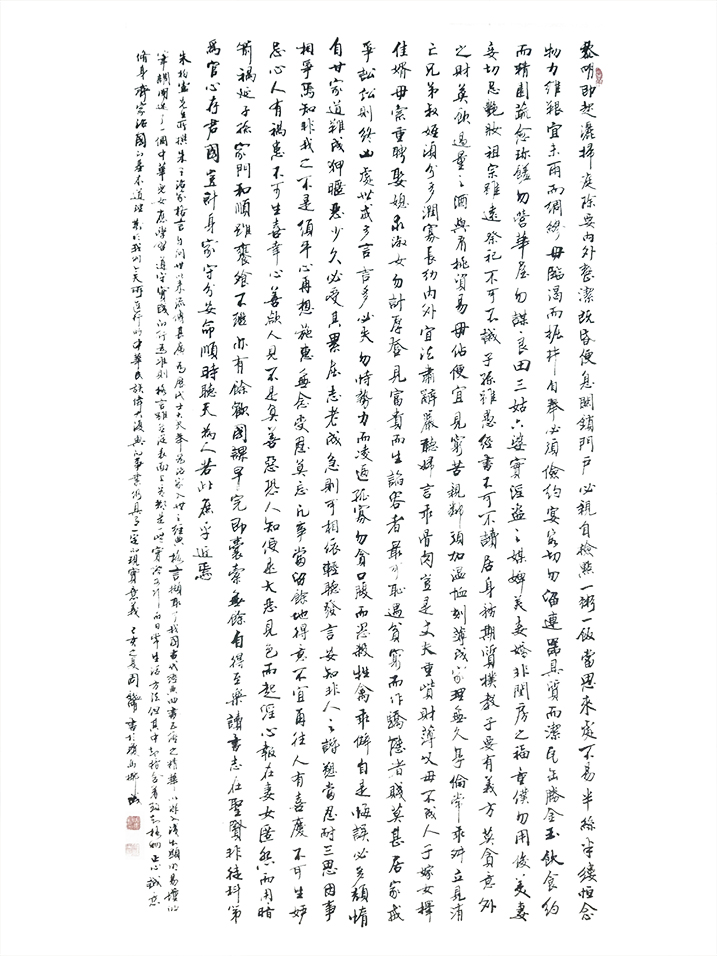 黎明即起灑掃庭除要內外整潔既昏便息關鎖門戶必親自檢點一粥一飯當思來處不易半絲半縷恒念
物力維艱宜未雨而綢繆毋臨渴而掘井自奉必須儉約宴客切勿留連器具質而潔瓦缶勝金玉飲食約
而精園蔬愈珍饈勿營華屋勿謀良田三姑六婆實淫盜之媒婢美妾嬌非閨房之福童僕勿用俊美妻
妾切忌艷妝祖宗雖遠祭祀不可不誠子孫雖愚經書不可不讀居身務期質樸教子要有義方莫貪意外
之財莫飲過量之酒與肩挑貿易毋佔便宜見窮苦親鄰須加溫恤刻薄成家理無久享倫常乖舛立見消
亡兄弟叔姪須分多潤寡長幼內外宜法肅辭嚴聽婦言乖骨肉豈是丈夫重貲財薄父母不成人子嫁女擇
佳婿毋索重聘娶媳求淑女勿計厚奩見富貴而生諂容者最可恥遇貧窮而作驕態者賤莫甚居家戒
爭訟訟則終凶處世戒多言言多必失勿恃勢力而凌逼孤寡勿貪口腹而恣殺牲禽乖僻自是悔誤必多頹惰
自甘家道難成狎暱惡少久必受其累屈志老成急則可相依輕聽發言安知非人之譖愬當忍耐三思因事
相爭焉知非我之不是須平心再想施惠無念受恩莫忘凡事當留餘地得意不宜再往人有喜慶不可生妒
忌心人有禍患不可生喜幸心善欲人見不是真善惡恐人知便是大惡見色而起淫心報在妻女匿怨而用暗
箭禍延子孫家門和順雖饔飧不繼亦有餘歡國課早完即囊橐無餘自得至樂讀書志在聖賢非徒科第
為官心存君國豈計身家守分安命順時聽天為人若此庶乎近焉
朱柏廬先生所撰朱子治家格言自問世以來流傳甚廣為歷代士大夫尊為治家之經典格言擷取了我國古代經典四書五經之精華以非入淺出顯明易懂的
闡述了一個中華兒女應學習遵守實踐的行為準則格言雖表面上是一些實實在在的日常生活方法但其中卻格物致知正心誠意
修身齊家治國的基本道理於我們今天所進行的中華民族偉大復興之事業仍具有一定的現實意義